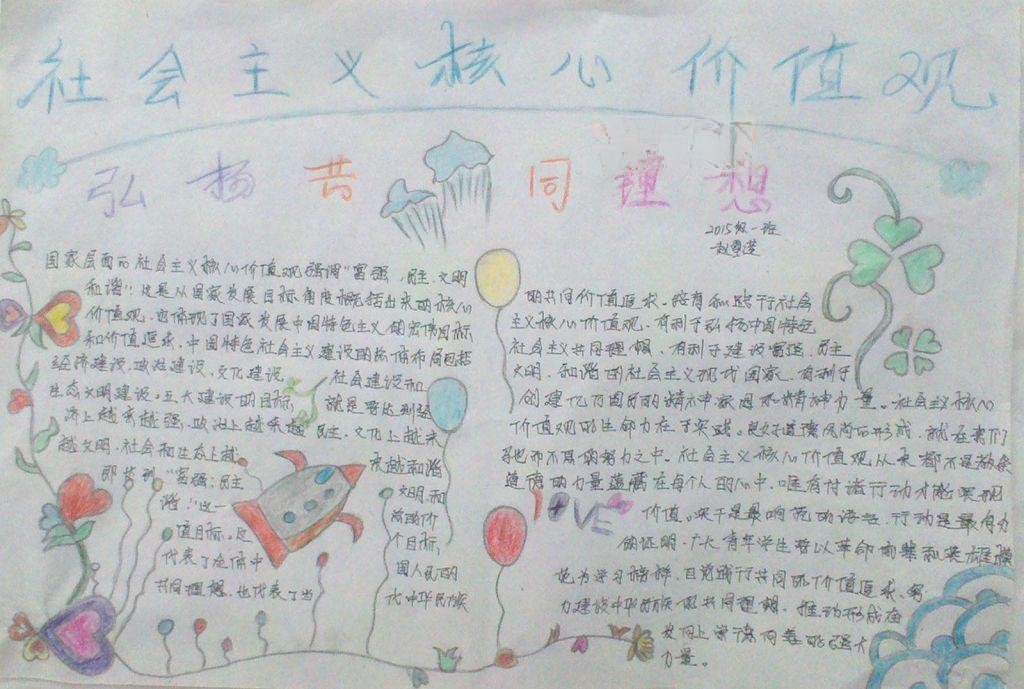 社会主义核心价值观
弘扬共同理想
2015级一班
国家层面的社会主义核心价值观强调“富强、民主、文明
和谐”,这是从国家发展目标角度概括出来的核心
价值观,也体现了国家发展中国特色主义的宏伟目标
和价值追求,中国特色社会主义建设的总体布局包括
经济建设、政治建设、文化建设、社会建设和
生态文明建设。五大建设的目标,就是要达到经
济上越来越强,政治上越来越民主,文化上越来
越文明,社会和生态上越来越和谐
即若到“富强、民主、文明、和
谐”这一
值目标。这个目标,
代表了全体中国人民的
共同理想,也代表了当代中华民族
的共同价值追求。培育和践行社会
主义核心价值观,有利于弘扬中国特色
社会主义共同理想,有利于建设富强、民主
文明、和谐的社会主义现代国家,有利于
创建亿万国民的精神家园和精神力量。社会主义核心
价值观的生命力在于实践。良好道德风尚的形成,就在我们
孜孜不息的努力之中。社会主义核心价值观从来都不是教条
道德的力量蕴藏在每个人的心中,唯有付诸行动才能实现
LOVE
价值。实干是最响亮的语言,行动是最有力
的证明。广大青年学生要以革命前辈和英雄模
范为学习榜样,自觉践行共同的价值追求,努
力建设中华民族的共同理想,推动形成奋
发向上崇德向善的强大
力量。